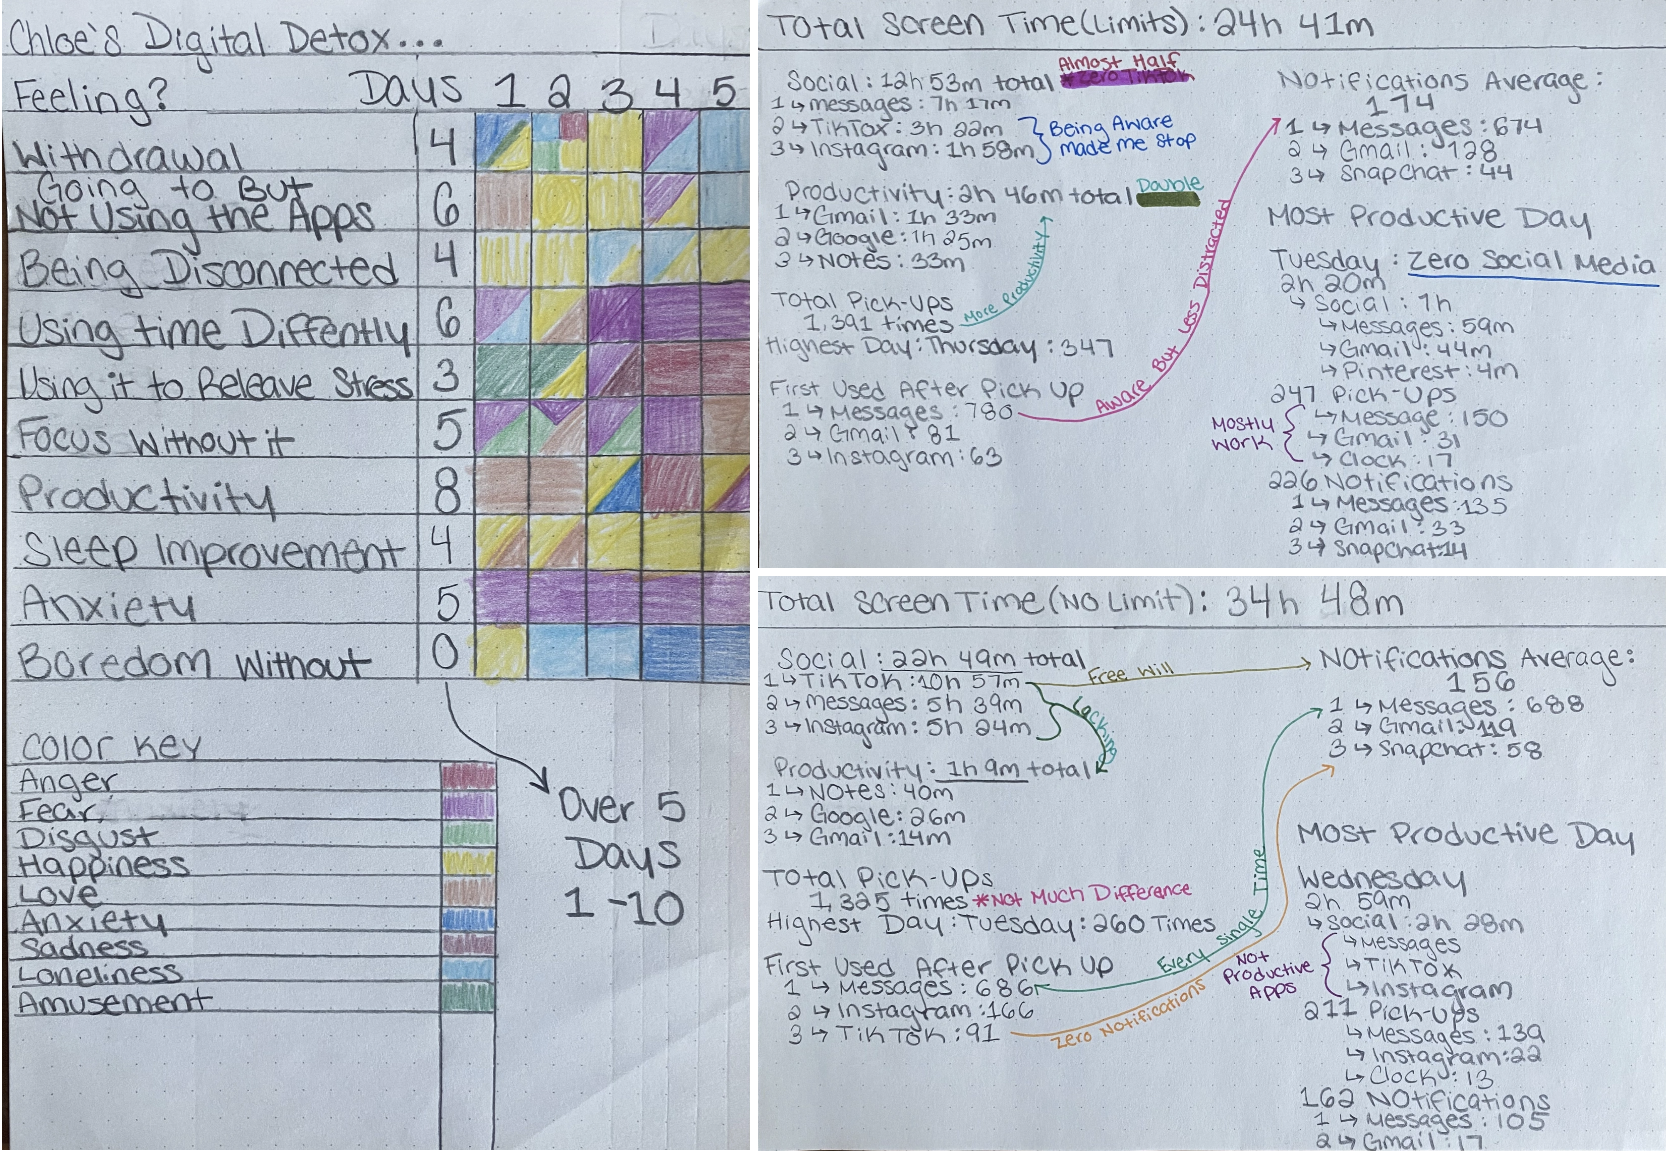 Chloe's Digital Detox...
Feeling? Days 1 2 3 4 5
Withdrawal 4
Going to But
Not Using the Apps 6
Being Disconnected 4
Using time Diffently 6
Using it to Releave Stress 3
Focus Without it 5
Productivity 8
Sleep Improvement 4
Anxiety 5
Boredom Without 0
Over 5
Days
1-10
Color Key
Anger
Fear
Disgust
Happiness
Love
Anxiety
Sadness
Loneliness
Amusement
Total Screen Time (Limits): 24h 41m
Social: 12h 53m total Almost Half
*Zero TikTok
1 ↳ messages: 7h 17m
2 ↳ TikTox: 3h 22m
3 ↳ Instagram: 1h 58m
Being Aware
made me stop
Productivity: 2h 46m total Double
1 ↳ Gmail: 1h 33m
2 ↳ Google: 1h 25m
3 ↳ Notes: 33m
Total Pick-Ups
1,391 times
More Productivity
Highest Day: Thursday: 347
First Used After Pick Up
1 ↳ Messages: 780
2 ↳ Gmail: 81
3 ↳ Instagram: 63
Aware But Less Distracted
Notifications Average:
174
1 ↳ Messages: 674
2 ↳ Gmail: 128
3 ↳ SnapChat: 44
Most Productive Day
Tuesday: Zero Social Media
2h 20m
↳ Social: 1h
↳ Messages: 59m
↳ Gmail: 44m
↳ Pinterest: 4m
247 Pick-Ups
↳ Message: 150
↳ Gmail: 31
↳ Clock: 17
Mostly
Work
226 Notifications
1 ↳ Messages: 135
2 ↳ Gmail: 33
3 ↳ Snapchat: 14
Total Screen Time (No Limit): 34h 48m
Social: 22h 49m total
1 ↳ TikTok: 10h 57m
2 ↳ Messages: 5h 39m
3 ↳ Instagram: 5h 24m
Free Will
Lacking
Productivity: 1h 9m total
1 ↳ Notes: 40m
2 ↳ Google: 26m
3 ↳ Gmail: 14m
Total Pick-Ups
1,325 times *Not Much Difference
Highest Day: Tuesday: 260 Times
First Used After Pick Up
1 ↳ Messages: 686
2 ↳ Instagram: 166
3 ↳ TikTok: 91
Every single Time
Zero Notifications
Notifications Average:
156
1 ↳ Messages: 688
2 ↳ Gmail: 119
3 ↳ Snapchat: 58
Most Productive Day
Wednesday
2h 59m
↳ Social: 2h 28m
↳ Messages
↳ TikTox
↳ Instagram
Not
Productive
Apps
211 Pick-Ups
↳ Messages: 139
↳ Instagram: 22
↳ Clock: 13
162 Notifications
1 ↳ Messages: 105
2 ↳ Gmail: 17